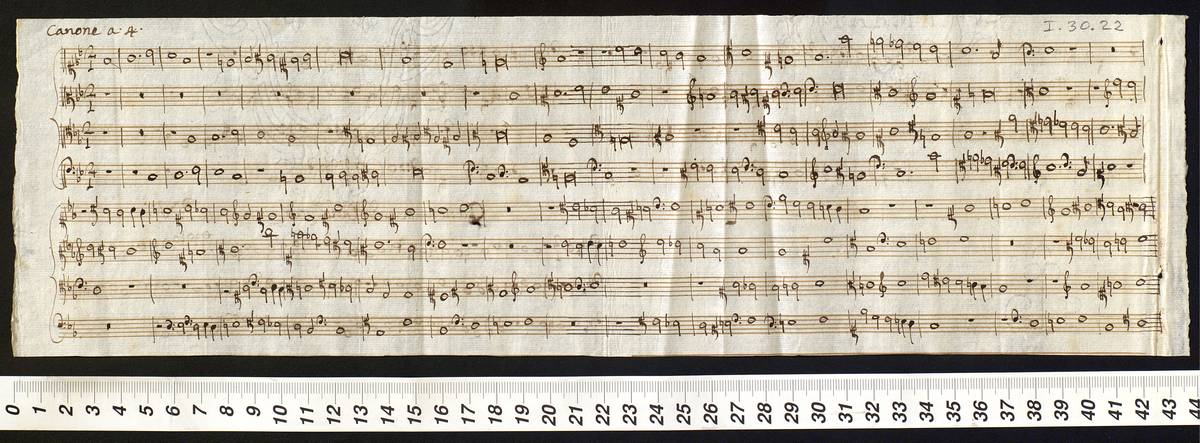 Canone a 4.
I.30.22
0 1 2 3 4 5 6 7 8 9 10 11 12 13 14 15 16 17 18 19 20 21 22 23 24 25 26 27 28 29 30 31 32 33 34 35 36 37 38 39 40 41 42 43 44